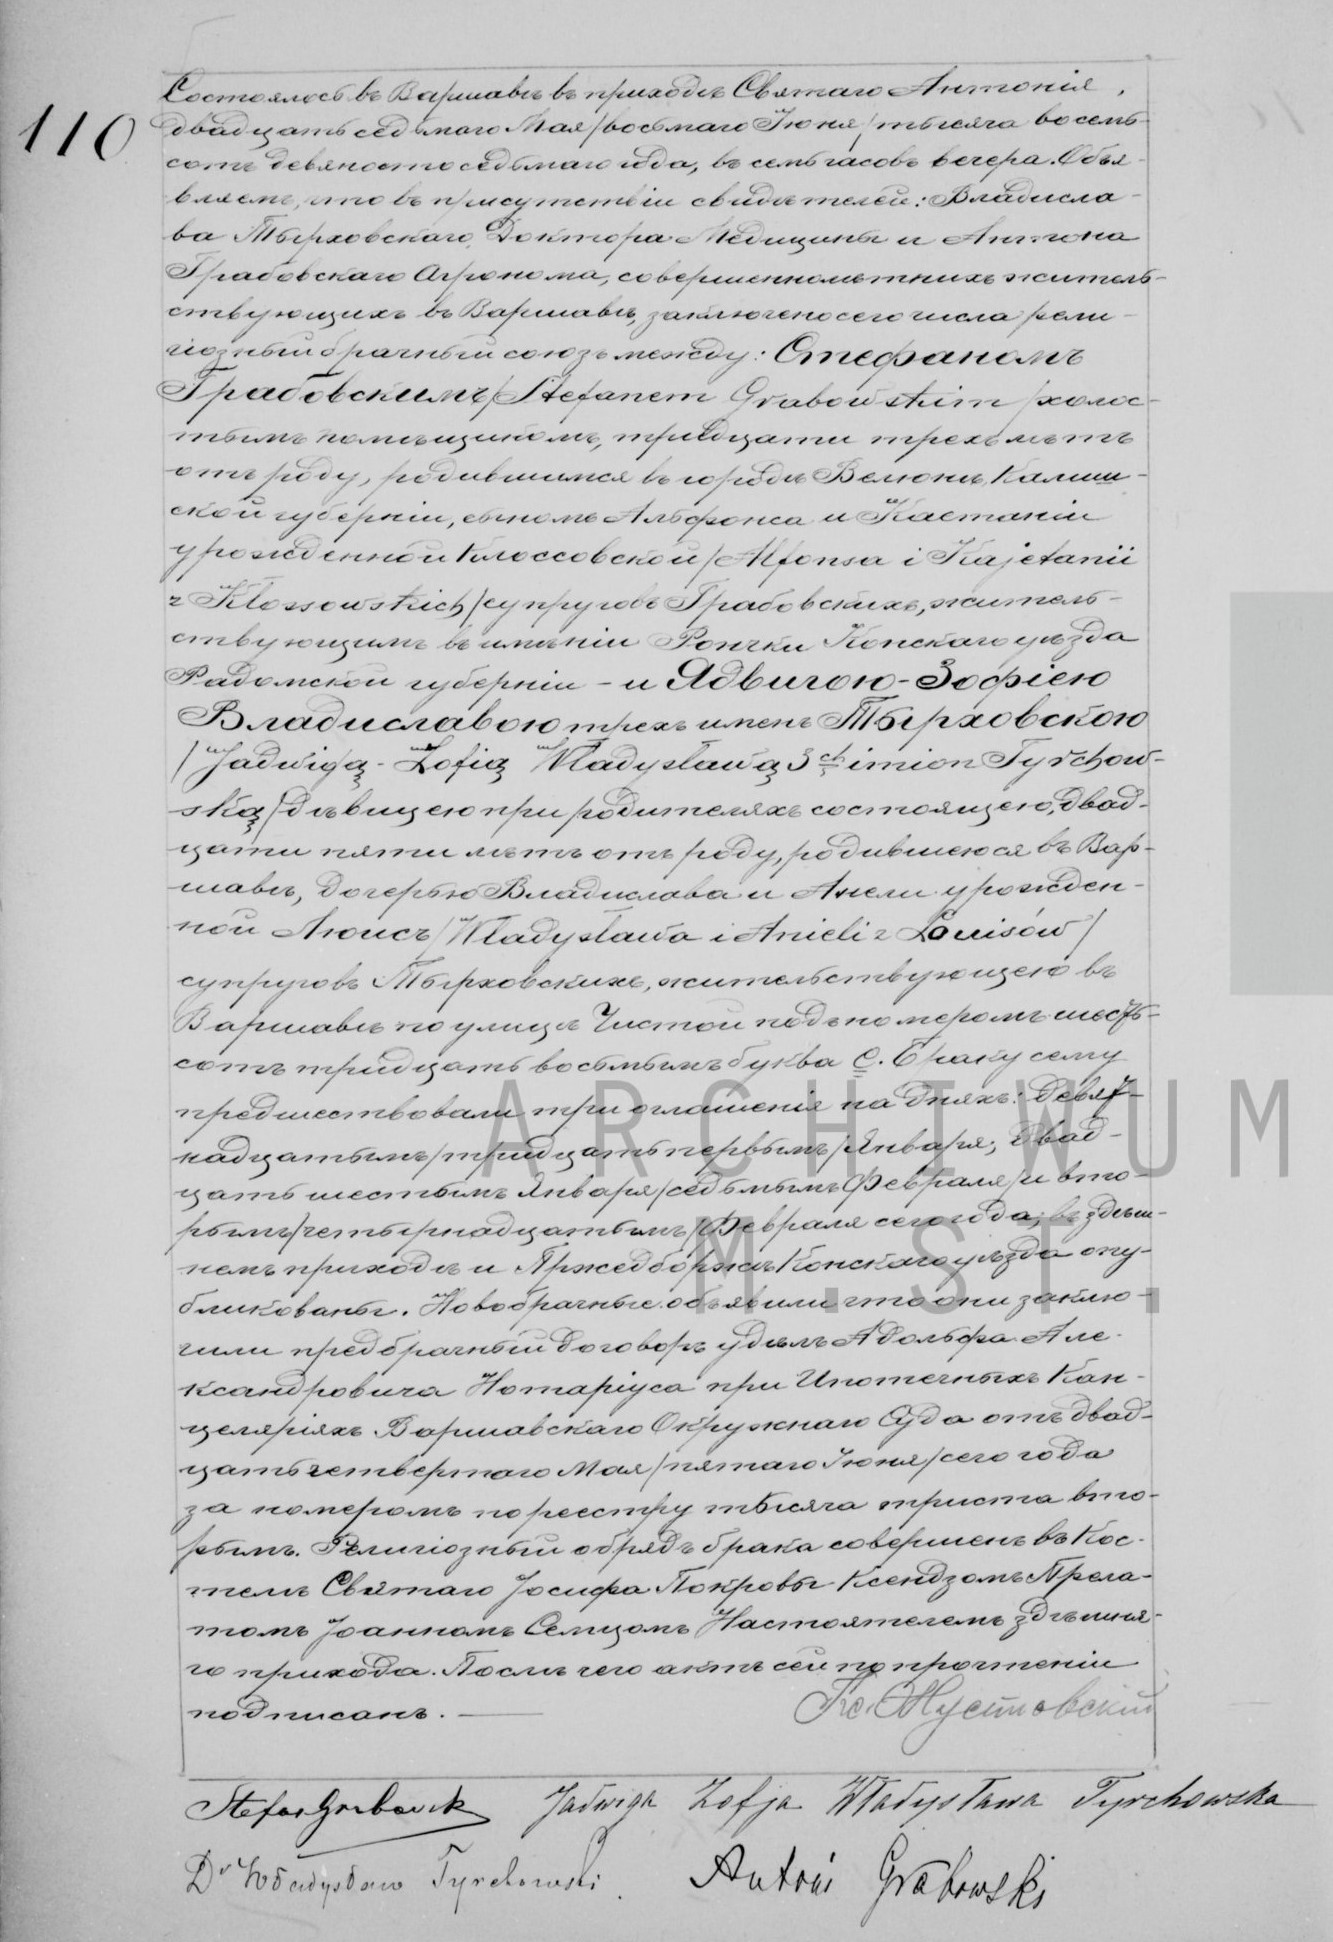 110
Состоялось въ Варшавѣ въ приходѣ Святаго Антонія,
двадцать седьмаго Мая /восьмаго Іюня/ тысяча восемь-
сотъ девяносто седьмаго года, въ семь часовъ вечера. Объя-
вляемъ, что въ присутствіи свидѣтелей: Владисла-
ва Тырховскаго Доктора Медицины и Антона
Грабовскаго Агронома, совершеннолѣтнихъ житель-
ствующихъ въ Варшавѣ, заключено сего числа рели-
гіозный брачный союзъ между: Стефаномъ
Грабовскимъ /Stefanem Grabowskim/ холос-
тымъ помѣщикомъ, тридцати трехъ лѣтъ
отъ роду, родившимся въ городѣ Велюнѣ, Калиш-
ской губерніи, сыномъ Альфонса и Каетаніи
урожденной Клоссовской /Alfonsa i Kajetanii
z Kłossowskich/ супруговъ Грабовскихъ, житель-
ствующимъ въ имѣніи Рончки Конскаго уѣзда
Радомской губерніи – и Ядвигою-Зофіею
Владиславою трехъ именъ Тырховскою
/Jadwigą-Zofią Władysławą 3ch imion Tyrchow-
ską/ дѣвицею при родителяхъ состоящею, двад-
цати пяти лѣтъ отъ роду, родившеюся въ Вар-
шавѣ, дочерью Владислава и Анели урожден-
ной Люисъ /Władysława i Anieli z Louisów/
супруговъ Тырховскихъ, жительствующею въ
Варшавѣ по улицѣ Чистой подъ номеромъ шесть-
сотъ тридцать восьмымъ буква С. Браку сему
предшествовали три оглашенія на дняхъ: девят-
надцатымъ /тридцать первымъ/ Января; двад-
цать шестымъ Января /седьмымъ Февраля/ и вто-
рымъ /четырнадцатымъ/ Февраля сего года, въ здѣш-
немъ приходѣ и Пржедборжѣ Конскаго уѣзда опу-
бликованы. Новобрачные объявили что они заклю-
чили предбрачный договоръ у дѣлъ Адольфа Але-
ксандровича Нотаріуса при Ипотечныхъ Кан-
целяріяхъ Варшавскаго Окружнаго Суда отъ двад-
цать четвертаго Мая /пятаго Іюня/ сего года
за номеромъ по реестру тысяча триста вто-
рымъ. Религіозный обрядъ брака совершенъ въ Кос-
телѣ Святаго Іосифа Покровы Ксендзомъ Прела-
томъ Іоанномъ Семцомъ Настоятелемъ здѣшня-
го прихода. Послѣ чего актъ сей по прочтеніи
подписанъ.
Кс.
Stefan Grabowski Jadwiga Zofja Władysława Tyrchowska
Dr Władysław Tyrchowski. Antoni Grabowski
ARCHIWUM
M. ST.